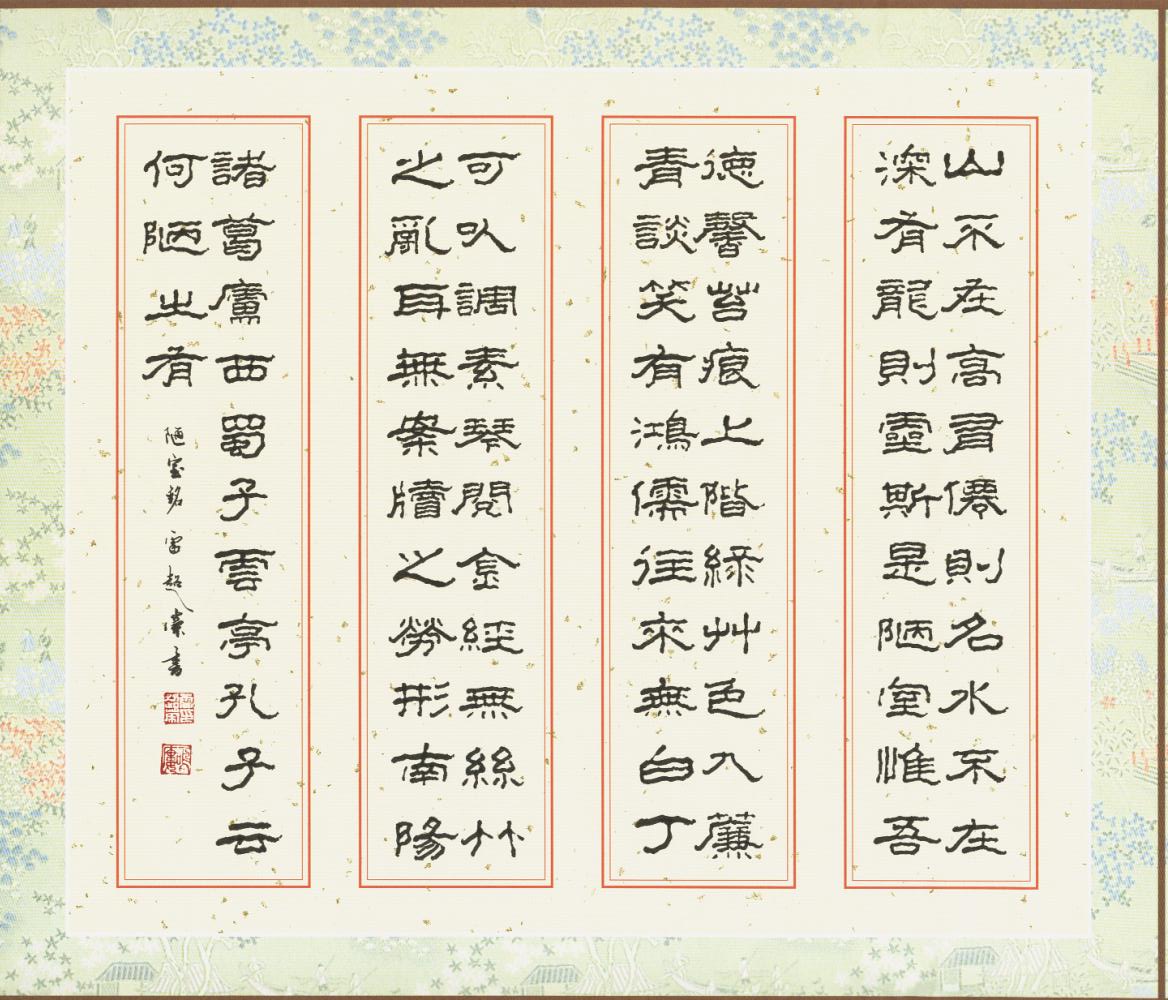 山不在高有僊則名水不在
深有龍則靈斯是陋室惟吾
德馨苔痕上階綠艸色入簾
青談笑有鴻儒往來無白丁
可以調素琴閱金經無絲竹
之亂耳無案牘之勞形南陽
諸葛廬西蜀子雲亭孔子云
何陋之有
陋室銘 雷超 書